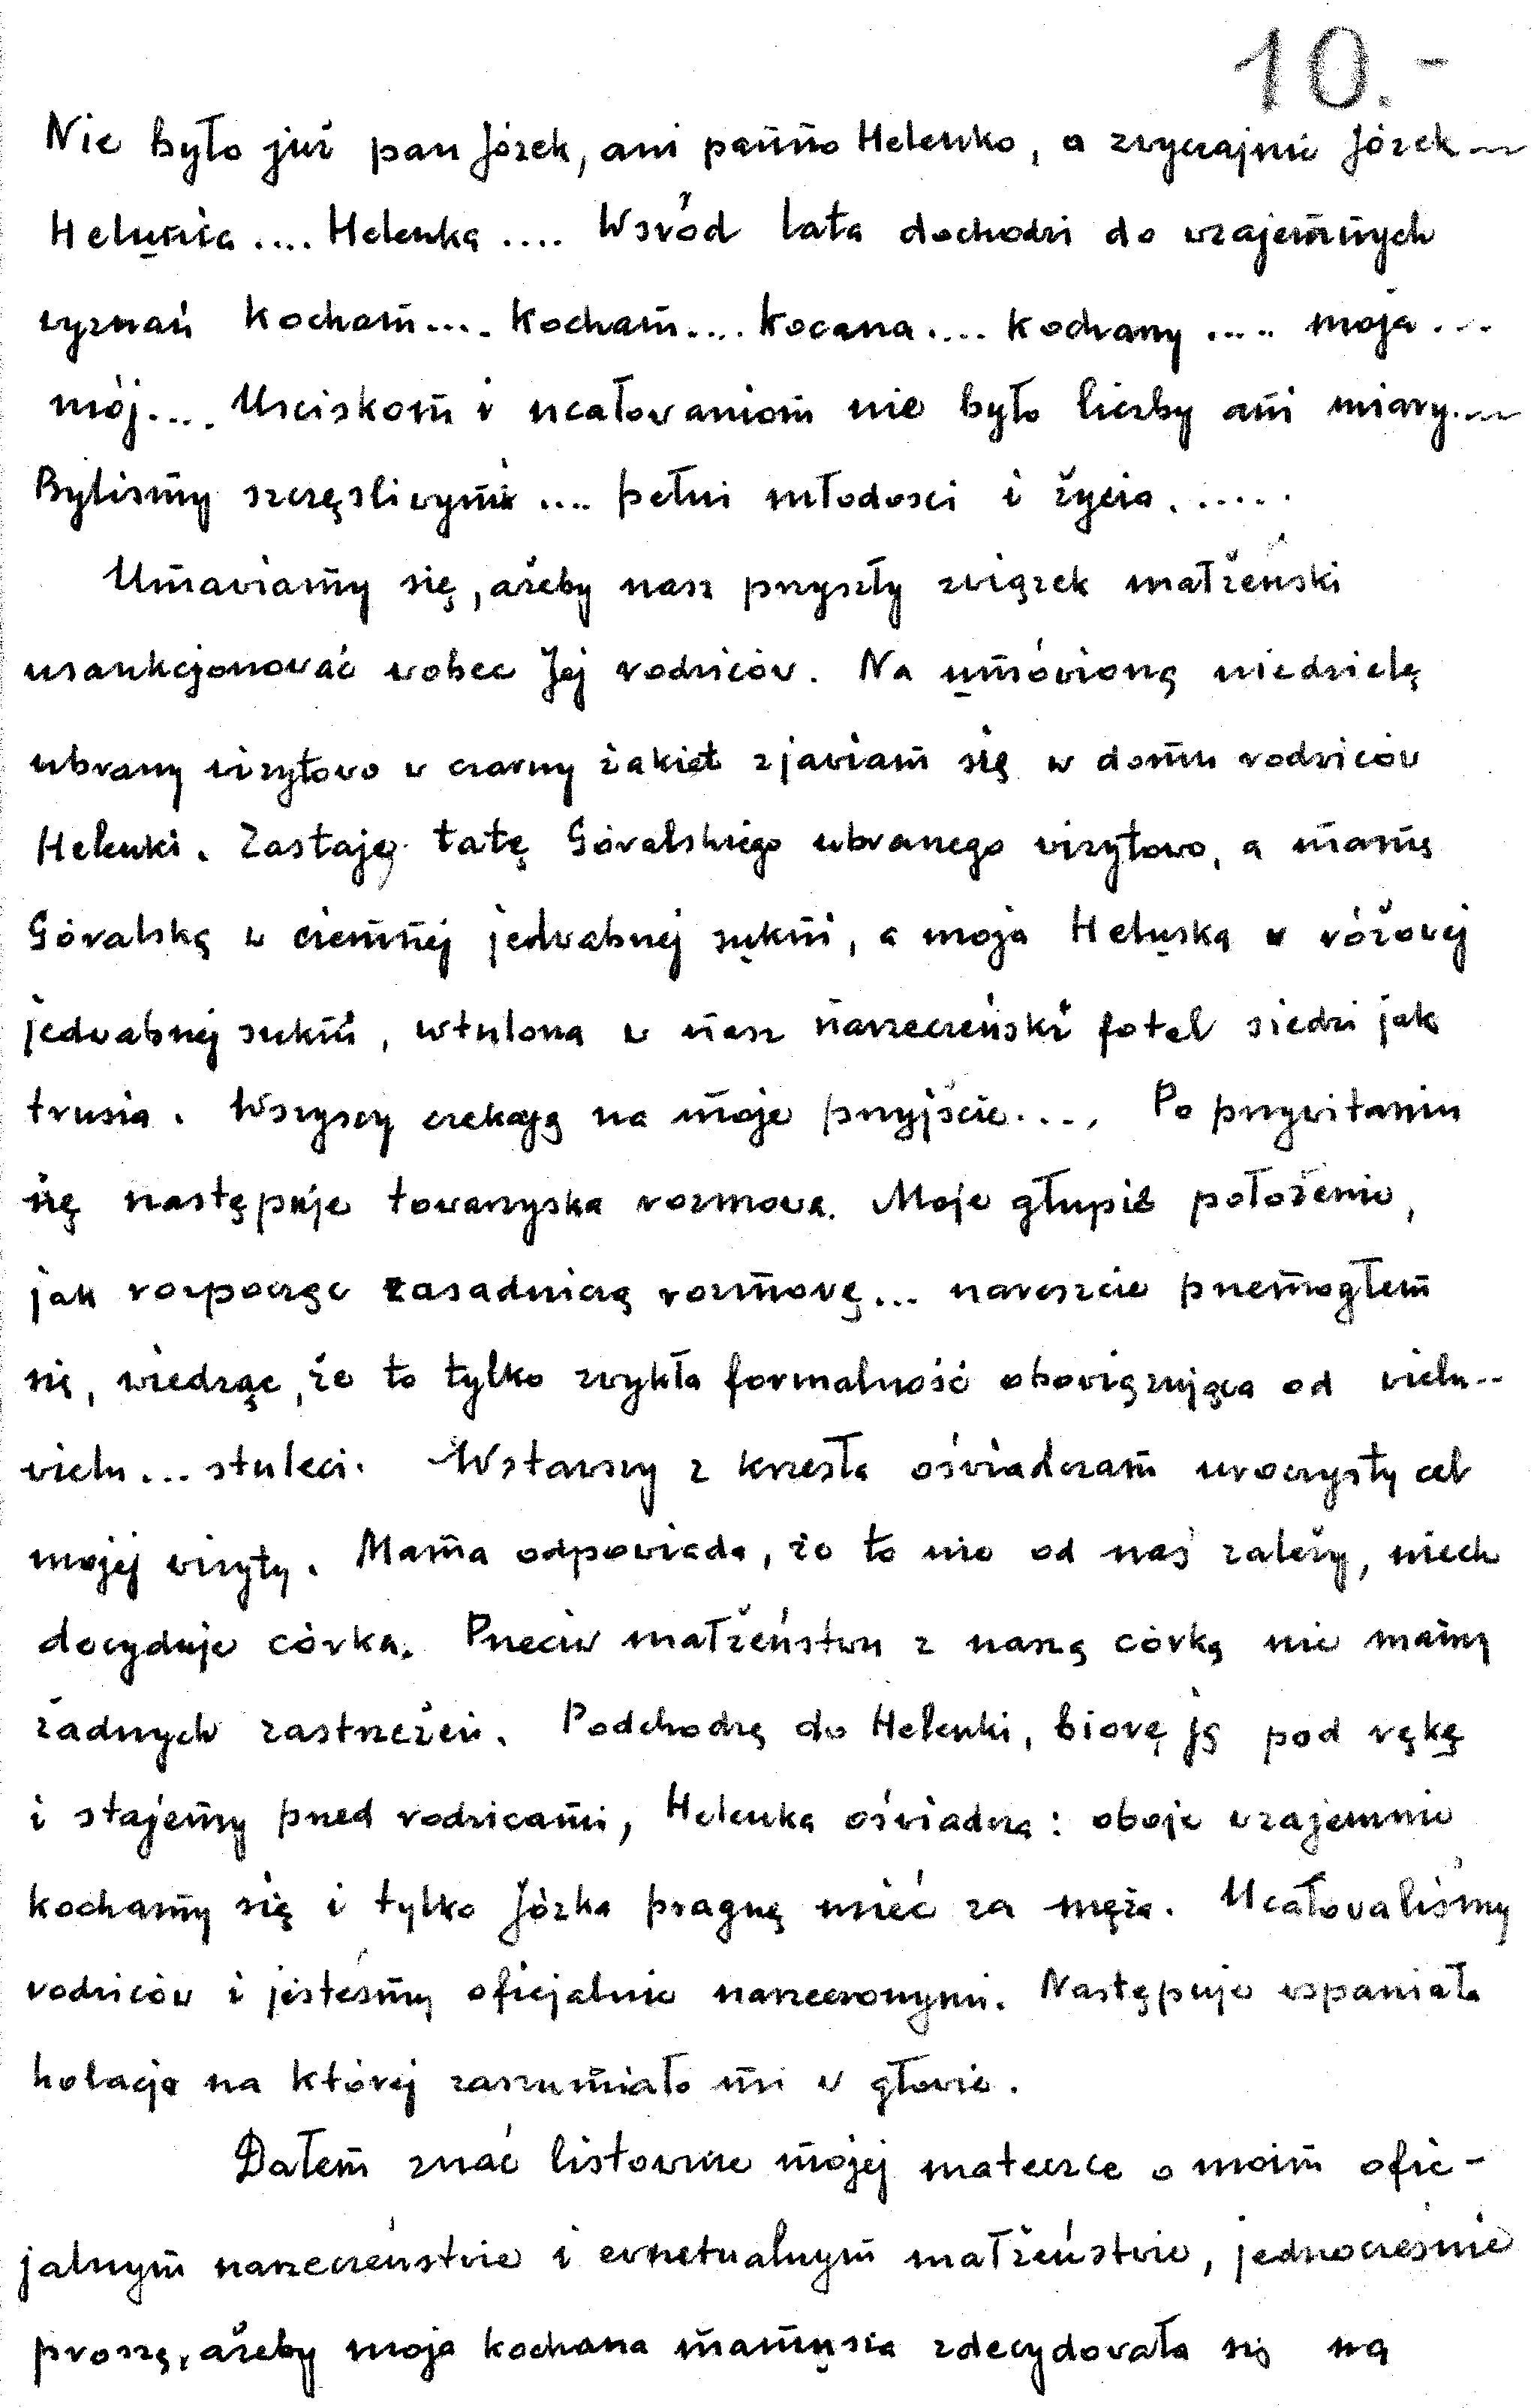 10.-
Nie było już pan Józek, ani panno Helenko, a zwyczajnie Józek...
Helunia.... Helenka.... Wsród lata dochodzi do wzajemnych
wyznań kocham.... kocham.... kocana.... kochany..... moja...
mój.... Usciskom i ucałowaniom nie było liczby ani miary...
Bylismy szczęsliwymi.... pełni młodosci i życia......
Umawiamy się, ażeby nasz przyszły związek małżeński
usankcjonować wobec Jej rodziców. Na umówioną niedzielę
ubrany wizytowo w czarny żakiet zjawiam się w domu rodziców
Helenki. Zastaję tatę Góralskiego ubranego wizytowo, a mamę
Góralską w ciemnej jedwabnej sukni, a moja Heluska w różowej
jedwabnej sukni, wtulona w nasz narzeczeński fotel siedzi jak
trusia. Wszyscy czekają na moje przyjście.... Po przywitaniu
się następuje towarzyska rozmowa. Moje głupie położenie,
jak rozpocząc zasadniczą rozmowę... nareszcie przemogłem
się, wiedząc, że to tylko zwykła formalność obowiązująca od wielu..
wielu... stuleci. Wstawszy z krzesła oświadczam uroczysty cel
mojej wizyty. Mama odpowiada, że to nie od nas zależy, niech
decyduje córka. Przeciw małżeństwu z naszą córką nie mamy
żadnych zastrzeżeń. Podchodzę do Helenki, biorę ją pod rękę
i stajemy przed rodzicami, Helenka oświadcza: oboje wzajemnie
kochamy się i tylko Józka pragnę mieć za męża. Ucałowaliśmy
rodziców i jesteśmy oficjalnie narzeczonymi. Następuje wspaniała
kolacja na której zaszumiało mi w głowie.
Dałem znać listownie mojej mateczce o moim ofic-
jalnym narzeczeństwie i ewnetualnym małżeństwie, jednocześnie
proszę, ażeby moja kochana mamusia zdecydowała się na